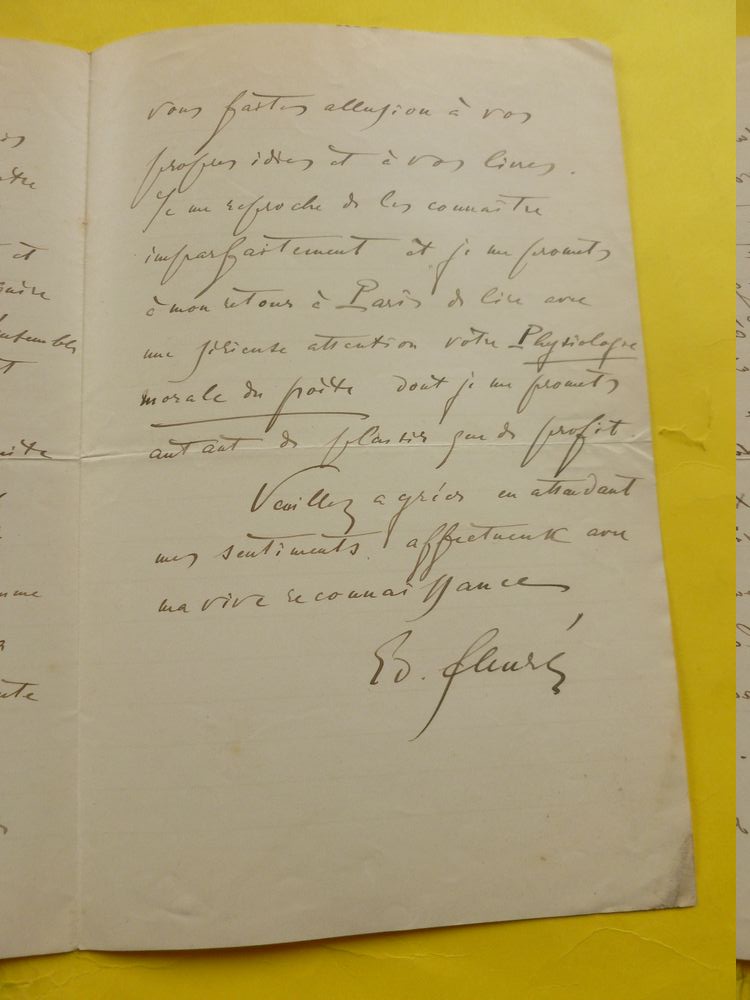 vous faites allusion à vos
propres idées et à vos livres.
Je me reproche de les connaître
imparfaitement et je me promets
à mon retour à Paris de lire avec
une sérieuse attention votre Physiologie
morale du poète dont je me promets
autant de plaisir que de profit
Veuillez agréer en attendant
mes sentiments affectueux avec
ma vive reconnaissance
Ed. Schuré